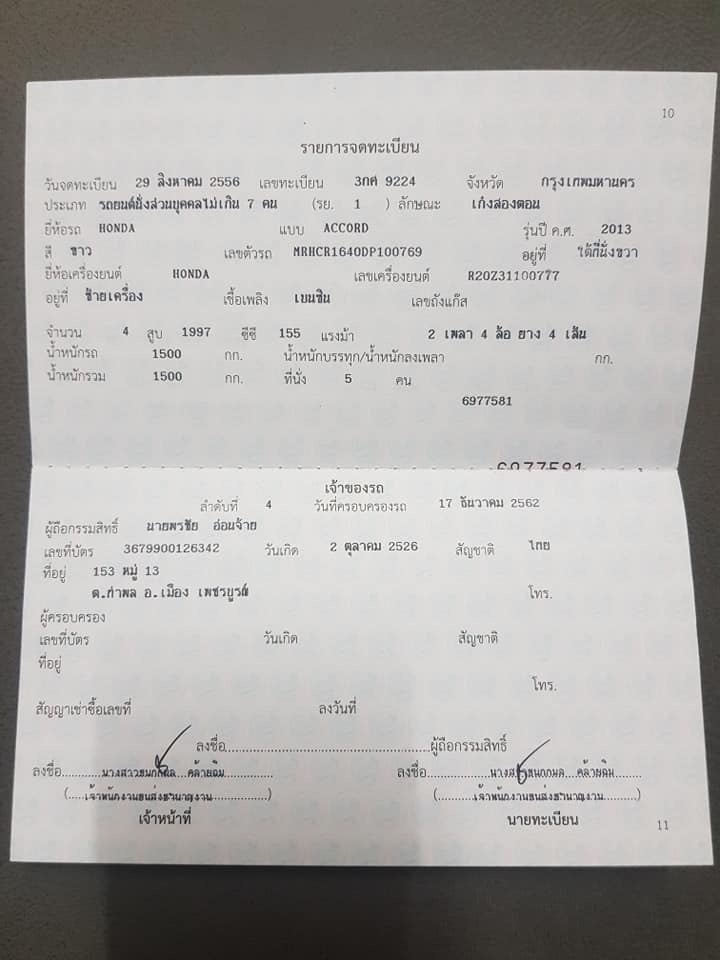 10
รายการจดทะเบียน
วันจดทะเบียน 29 สิงหาคม 2556 เลขทะเบียน 3กศ 9224 จังหวัด กรุงเทพมหานคร
ประเภท รถยนต์นั่งส่วนบุคคลไม่เกิน 7 คน (รย. 1 ) ลักษณะ เก๋งสองตอน
ยี่ห้อรถ HONDA แบบ ACCORD รุ่นปี ค.ศ. 2013
สี ขาว เลขตัวรถ MRHCR1640DP100769 อยู่ที่ ใต้ที่นั่งขวา
ยี่ห้อเครื่องยนต์ HONDA เลขเครื่องยนต์ R20Z31100777
อยู่ที่ ซ้ายเครื่อง เชื้อเพลิง เบนซิน เลขถังแก๊ส
จำนวน 4 สูบ 1997 ซีซี 155 แรงม้า 2 เพลา 4 ล้อ ยาง 4 เส้น
น้ำหนักรถ 1500 กก. น้ำหนักบรรทุก/น้ำหนักลงเพลา กก.
น้ำหนักรวม 1500 กก. ที่นั่ง 5 คน
6977581
6977581
เจ้าของรถ
ลำดับที่ 4 วันที่ครอบครองรถ 17 ธันวาคม 2562
ผู้ถือกรรมสิทธิ์ นายพรชัย อ่อนจ้าย
เลขที่บัตร 3679900126342 วันเกิด 2 ตุลาคม 2526 สัญชาติ ไทย
ที่อยู่ 153 หมู่ 13
ต. อ.เมือง เพชรบูรณ์ โทร.
ผู้ครอบครอง
เลขที่บัตร วันเกิด สัญชาติ
ที่อยู่
โทร.
สัญญาเช่าซื้อเลขที่ ลงวันที่
ลงชื่อ..........ผู้ถือกรรมสิทธิ์
ลงชื่อ..........นางสาว คล้ายฉิม.......... ลงชื่อ.......... คล้ายฉิม..........
(.....เจ้าพนักงานขนส่งชำนาญงาน..........) (..........เจ้าพนักงานขนส่งชำนาญงาน..........)
เจ้าหน้าที่ นายทะเบียน
11